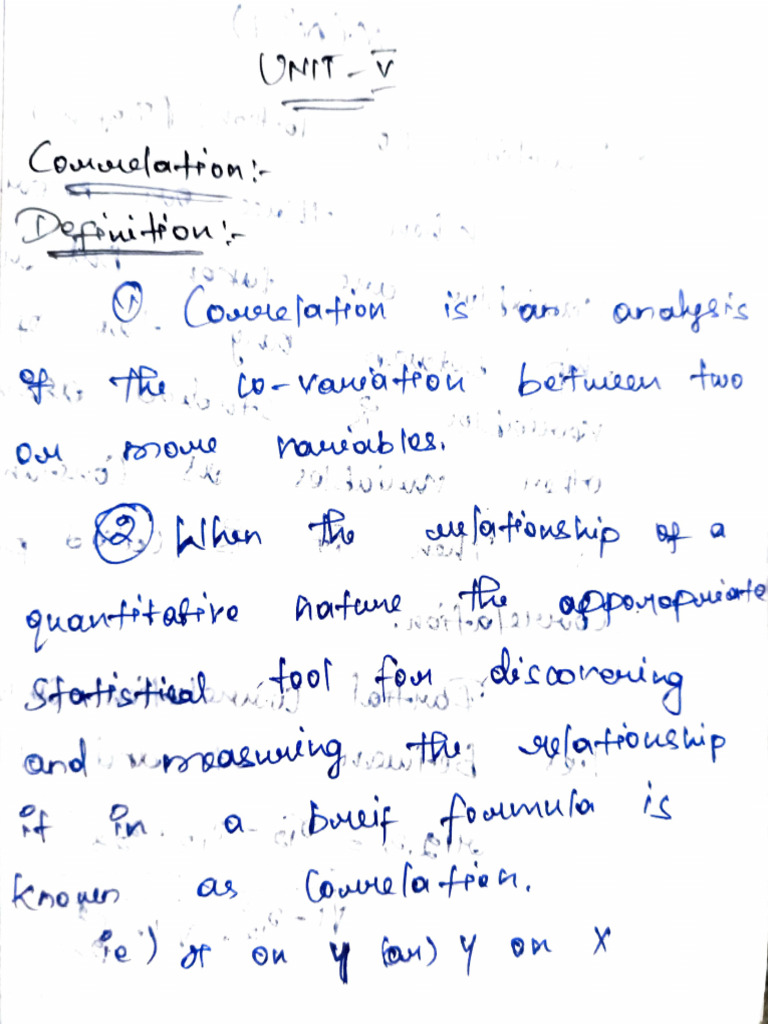 UNIT - V
Correlation:-
Definition:-
① Correlation is an analysis
of the co-variation between two
or more variables.
② When the relationship of a
quantitative nature the appropropriate
Statistical tool for discovering
and measuring the relationship
if in a breif formula is
known as Correlation.
ie) x on y (or) y on x